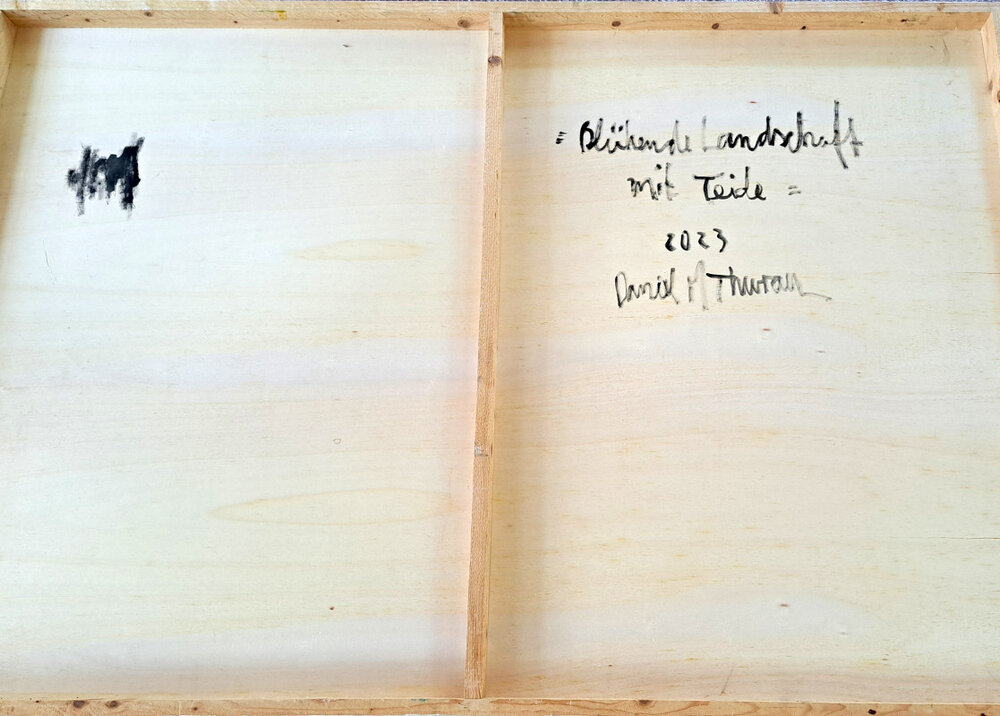 = Blühende Landschaft
mit Teide =
2023
Daniel M Thurau